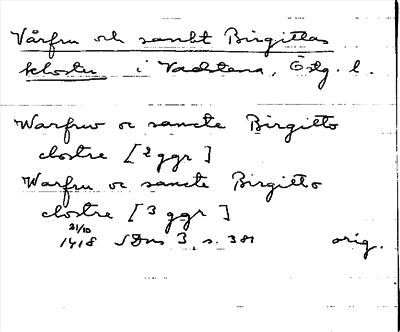 Vårfru och sankt Birgittas
kloster i Vadstena, Östg. l.
Warfrw oc sancte Birgitto
clostre [2 ggr]
Warfru oc sancte Birgitto
clostre [3 ggr]
21/10
1418 SDns 3, s. 381 orig.